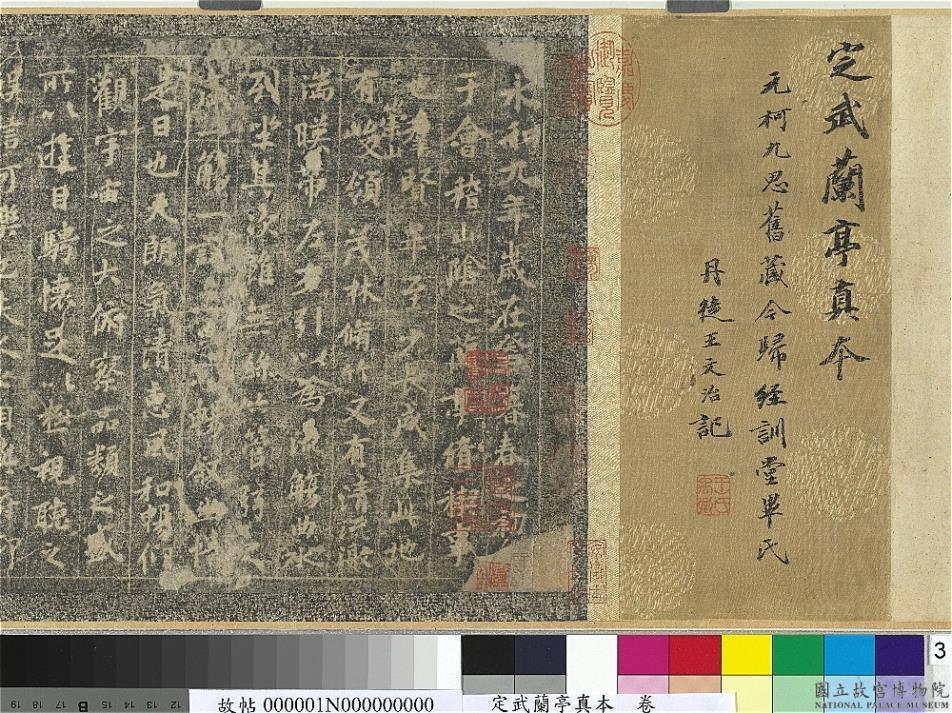 定武蘭亭真本
元柯九思舊藏今歸經訓堂畢氏
丹徒王文治記
永和九年歲在癸暮春之初
于會稽山陰之蘭亭脩稧事
也羣賢畢至少長咸集此地
有崇山峻領茂林脩竹又有清流激
湍暎帶左右引以為流觴曲水
列坐其次雖無絲竹管弦之
盛一觴一詠亦足以暢敘幽情
是日也天朗氣清惠風和暢仰
觀宇宙之大俯察品類之盛
所以遊目騁懷足以極視聽之
娛信可樂也夫人之相與俯仰
嘉慶御覽
3
19 18 17 B 16 15 14 13 12
故帖 000001N000000000 定武蘭亭真本 卷
國立故宮博物院
NATIONAL PALACE MUSEUM